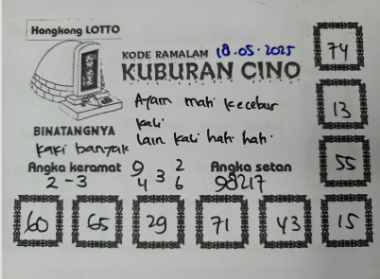 Hongkong LOTTO
KODE RAMALAM 18.05.2025
KUBURAN CINO
Ayam mati kecebur
kali
lain kali hati hati.
BINATANGNYA
kaki banyak
Angka keramat
2-3
9 3 2
4 6
Angka setan
98217
74
13
55
60 65 29 71 43 15